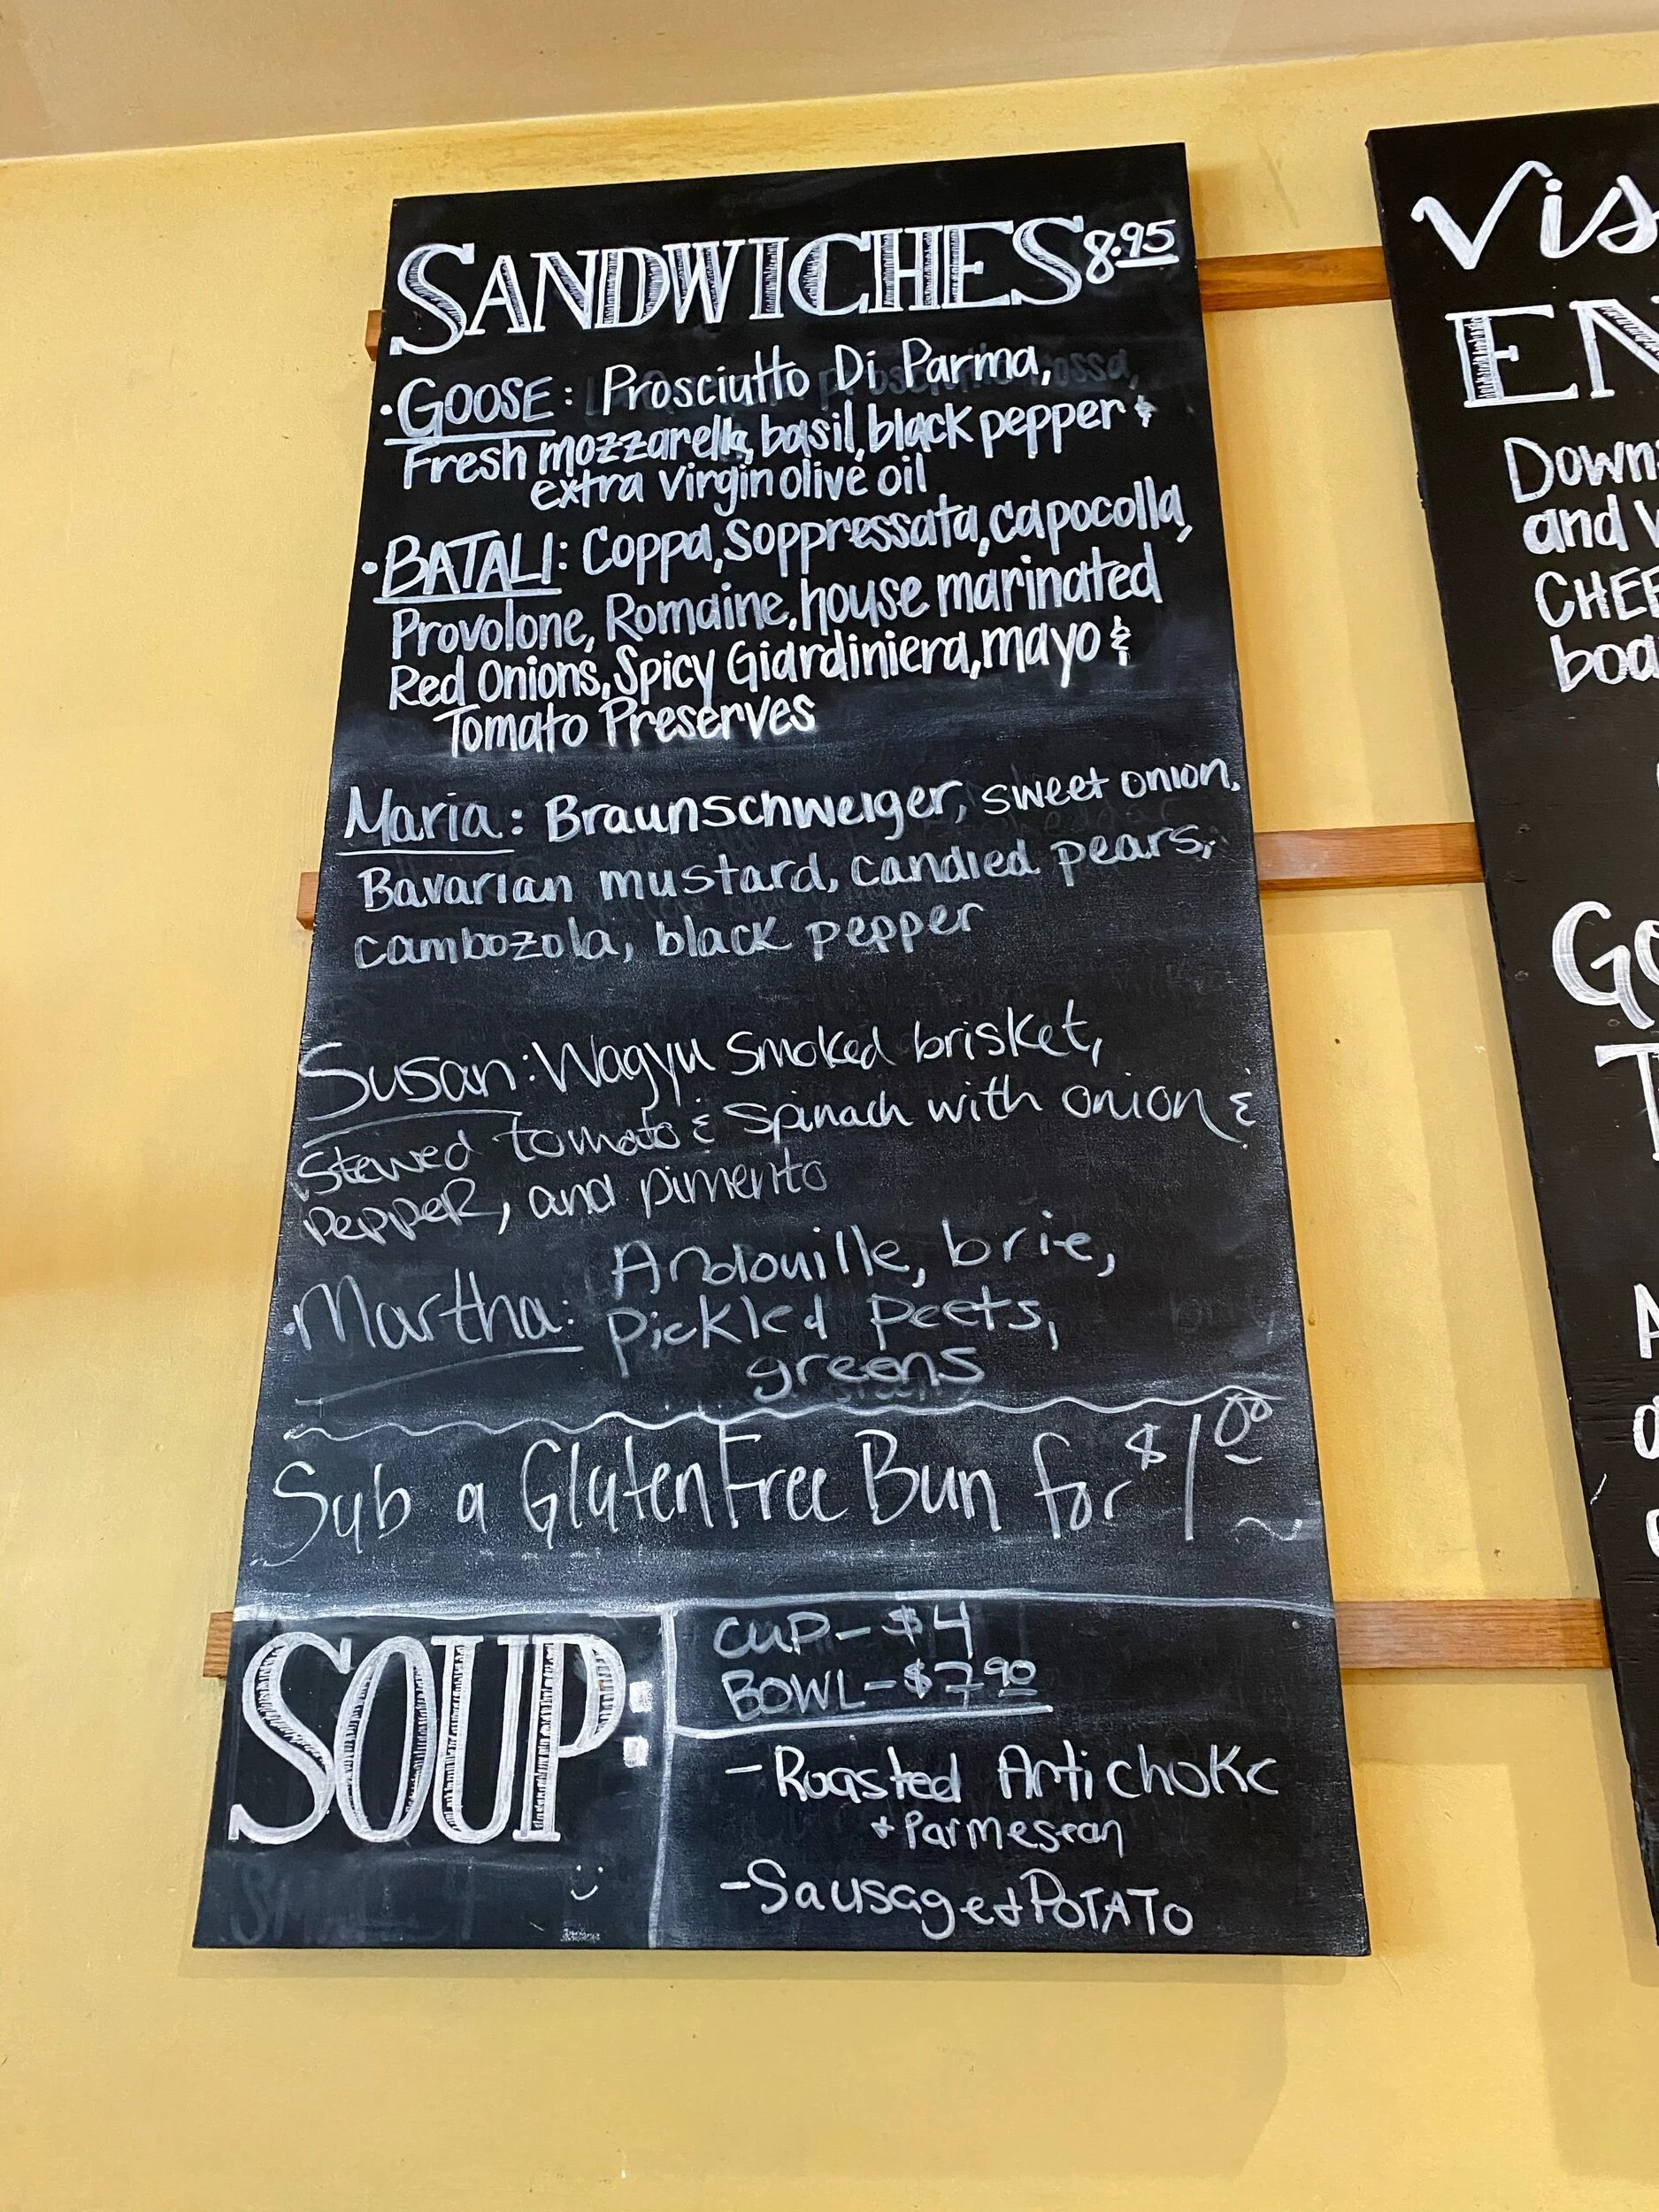 SANDWICHES 8.95
• GOOSE: Prosciutto Di Parma,
Fresh mozzarella, basil, black pepper &
extra virgin olive oil
• BATALI: Coppa, Soppressata, capocolla,
Provolone, Romaine, house marinated
Red Onions, Spicy Giardiniera, mayo &
Tomato Preserves
Maria: Braunschweiger, sweet onion,
Bavarian mustard, candied pears,
cambozola, black pepper
Susan: Wagyu smoked brisket,
stewed tomato & spinach with onion &
pepper, and pimento
• Martha: Andouille, brie,
pickled peets,
greens
Sub a Gluten Free Bun for $1.00
SOUP:
CUP - $4
BOWL - $7.90
- Roasted Artichoke
+ Parmesean
- Sausage + POTATO
Vis
EN
Down
and
CHEE
boa
GO
T
A